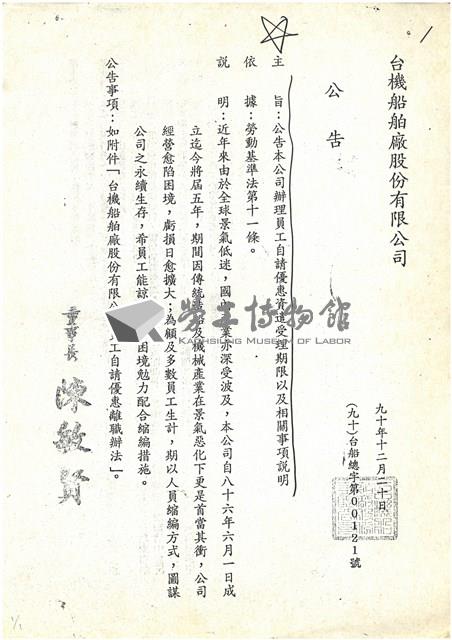 台機船舶廠股份有限公司
公告
九十年十二月二十日
(九十)台船總字第00121號
主旨：公告本公司辦理員工自請優惠資遣受理期限以及相關事項說明
依據：勞動基準法第十一條。
說明：近年來由於全球景氣低迷，國內業亦深受波及，本公司自八十六年六月一日成
立迄今將屆五年，期間因傳統造船及機械產業在景氣惡化下更是首當其衝，公司
經營愈陷困境，虧損日愈擴大；為顧及多數員工生計，期以人員縮編方式，圖謀
公司之永續生存，希員工能諒困境勉力配合縮編措施。
公告事項：如附件「台機船舶廠股份有限公員工自請優惠離職辦法」。
董事長 陳敏賢
勞工博物館
KAOHSIUNG MUSEUM OF LABOR
1/1